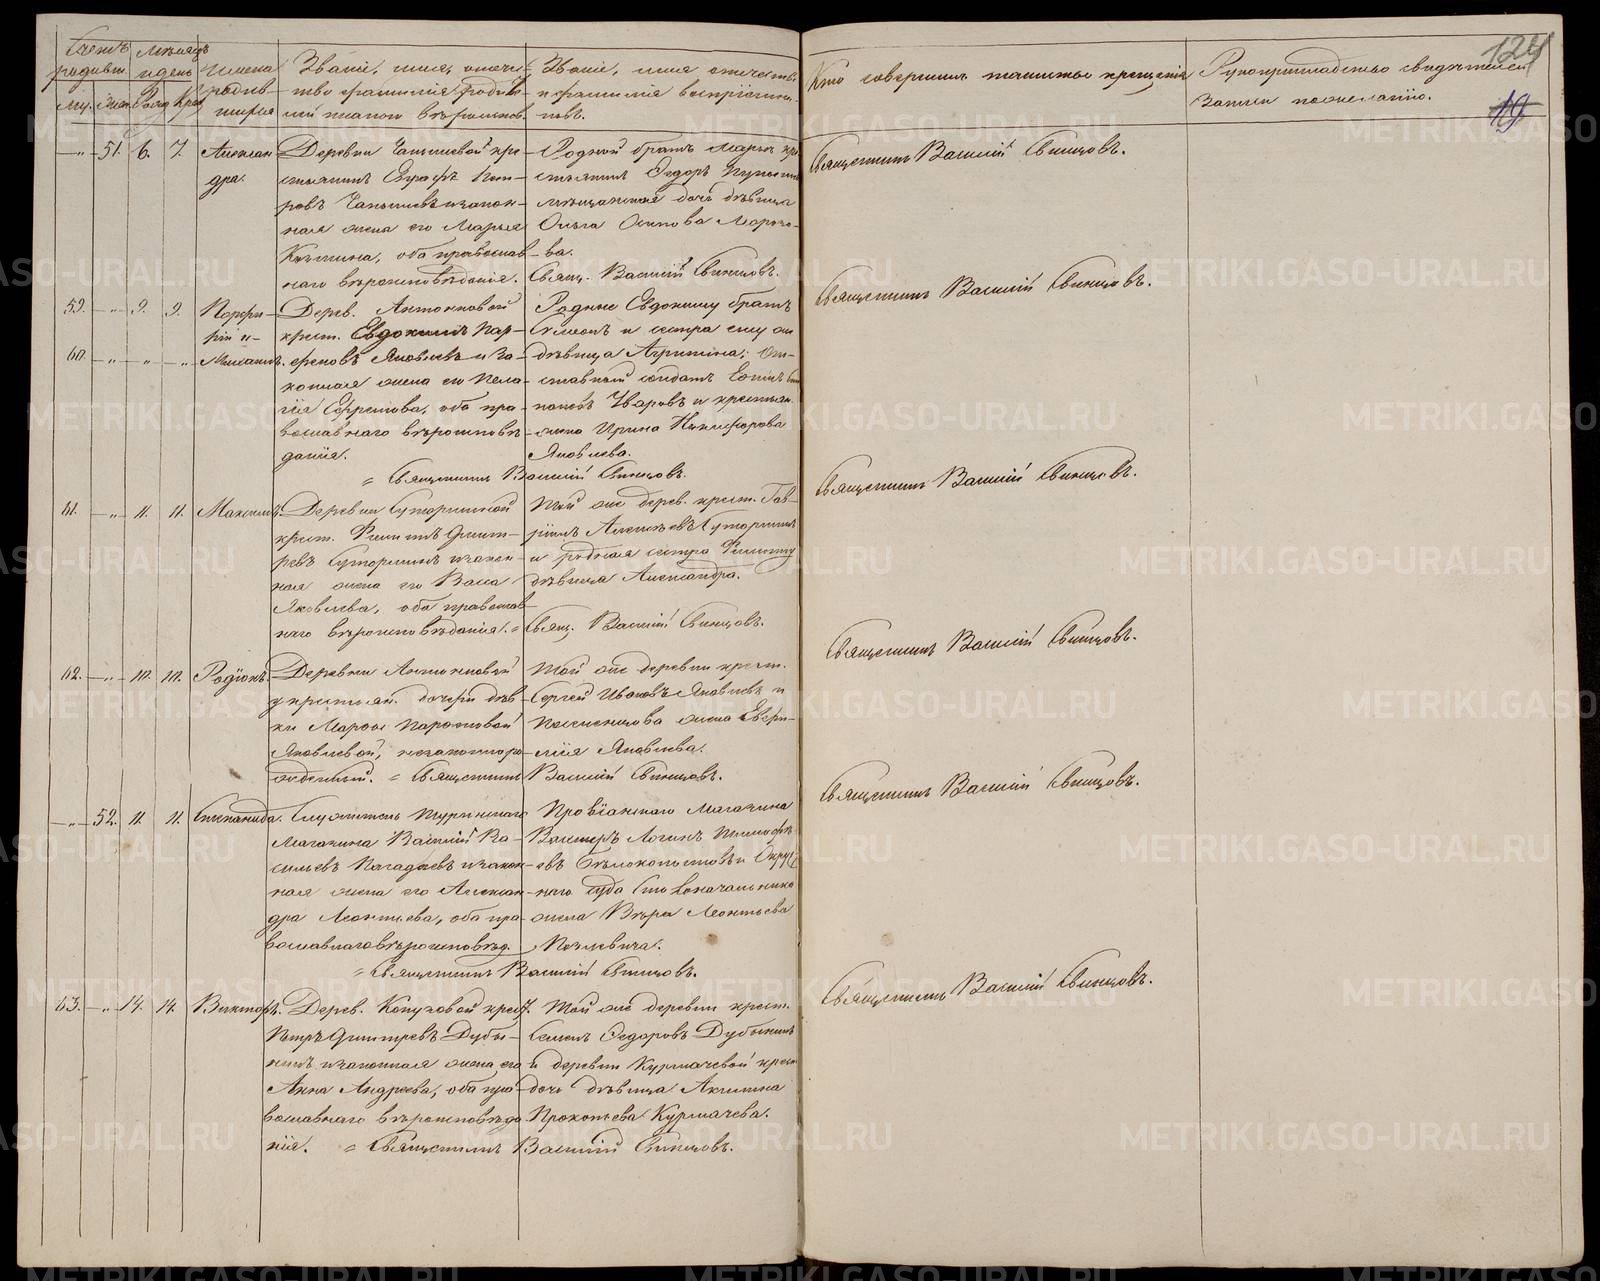 Счетъ родивш.
Муж. Жен.
Мѣсяцъ и день
Рожд. Крещ.
Имена родив-
шихся
Званіе, имя, отчес-
тво фамилія родите-
лей и какого вѣроисповѣ.
Званіе, имя отчество
и фамилія воспріемни-
ковъ.
Кто совершилъ таинство крещенія
Рукоприкладство свидѣтелей
записи по желанію.
124
19
—„— 51. 6. 7. Алексан-
дра.
Деревни
кре-
стьянинъ Евграфъ Пет-
ровъ
и закон-
ная жена его Марья
Козьмина, оба православ-
наго вѣроисповѣданія.
Родной братъ Марьи кре-
стьянинъ Ѳедоръ
мѣщанская дочь дѣвица
Ольга Осипова Мороз-
ва.
Свящ. Василій Свинцовъ.
Священникъ Василій Свинцовъ.
59. —„— 9. 9. Порфи-
рій и
60. —„— „ —„ Михаилъ.
Дерев. Антоновой
крест. Евдокимъ Пар-
ѳеновъ Яковлевъ и за-
конная жена его Пела-
гія Ефремова, оба пра-
вославнаго вѣроисповѣ-
данія.
Родные Евдокиму братъ
Симеонъ и сестра ему же
дѣвица Агрипина; От-
ставный солдатъ
Уваровъ и крестьян.
жена Ирина Никифорова
Яковлева.
= Священникъ Василій Свинцовъ.
Священникъ Василій Свинцовъ.
61. —„— 11. 11. Максимъ.
Деревни Суторминой
крест. Филипъ Дмит-
ревъ Суторминъ и закон-
ная жена его Васса
Яковлева, оба православ-
наго вѣроисповѣданія. =
Той же дерев. крест. Гав-
ріилъ Алексѣевъ Суторминъ
и родная сестра Филиппу
дѣвица Александра.
Свящ. Василій Свинцовъ.
Священникъ Василій Свинцовъ.
62. —„— 10. 10. Родіонъ.
Деревни Антоновой
у крестьян. дочери дѣв-
ки Марѳы Парѳеновой
Яковлевой, незаконноро-
жденный. = Священникъ Василій Свинцовъ.
Той же деревни крест.
Сергей Ивановъ Яковлевъ и
жена Евѳи-
мія Яковлева.
Священникъ Василій Свинцовъ.
—„— 52. 11. 11. Степанида.
Служитель Туринскаго
магазина Василій Ва-
сильевъ
и закон-
ная жена его Алексан-
дра Леонтьева, оба пра-
вославнаго вѣроисповѣд.
Провіанскаго магазина
Вахтеръ Логинъ Тимофѣ-
евъ Бѣлокопытовъ и Окруж-
наго суда Столоначальника
жена Вѣра Леонтьева
= Священникъ Василій Свинцовъ.
Священникъ Василій Свинцовъ.
63. —„— 14. 14. Викторъ.
Дерев.
крест.
Петръ Дмитревъ Дубы-
нинъ и законная жена его
Анна Андреева, оба пра-
вославнаго вѣроисповѣда-
нія. = Священникъ Василій Свинцовъ.
Той же деревни крест.
Семенъ Ѳедоровъ Дубынинъ
и деревни Курмачевой крест.
дочь дѣвица Акилина
Прокопьева Курмачева.
Священникъ Василій Свинцовъ.
METRIKI.GASO-URAL.RU